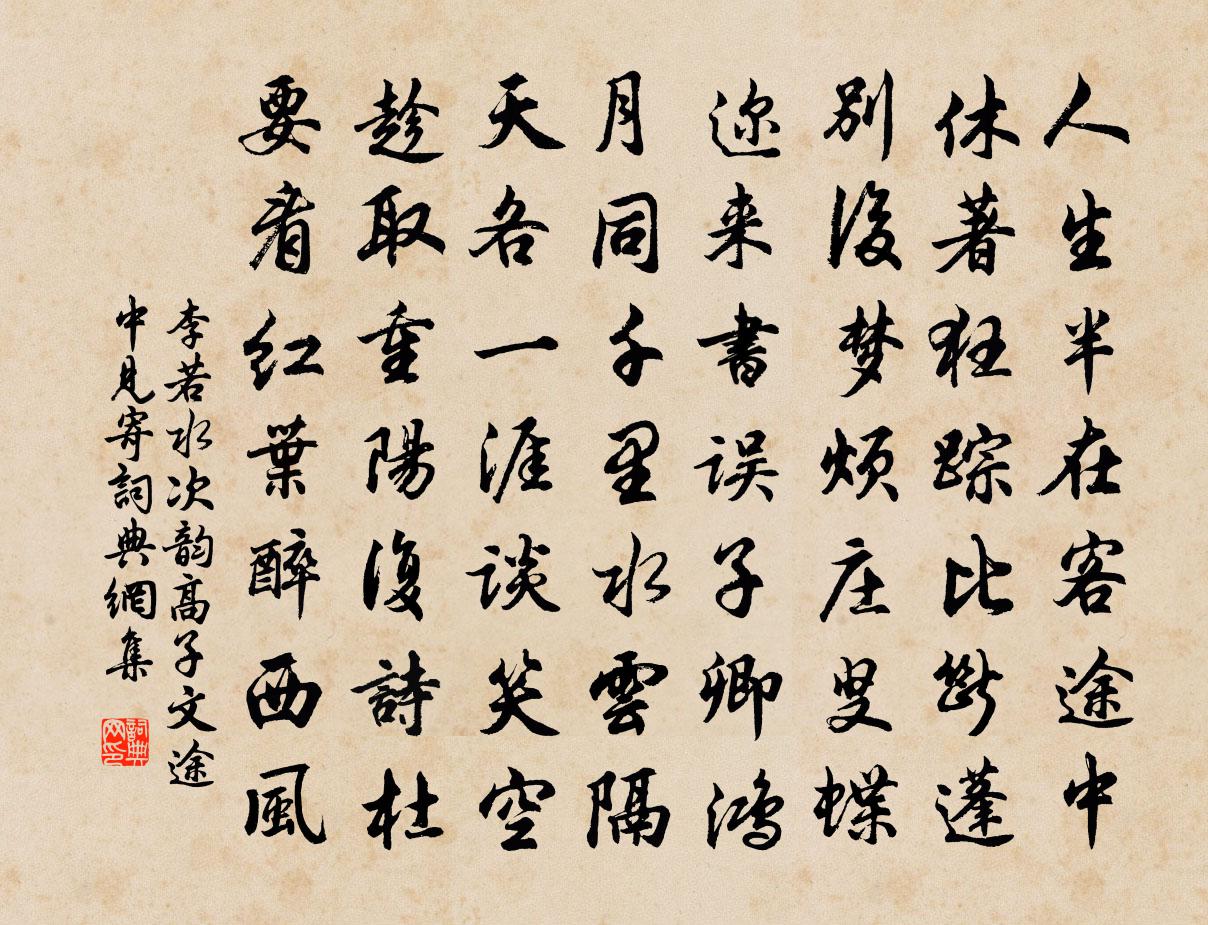 人生半在客途中
休著狂踪比断蓬
别後梦烦庄叟蝶
迩来書误子卿鸿
月同千里水雲隔
天各一涯谈笑空
趁取重陽復詩社
要看紅葉醉西風
李若水次韵高子文途
中見寄詞典網集
詞典
网印